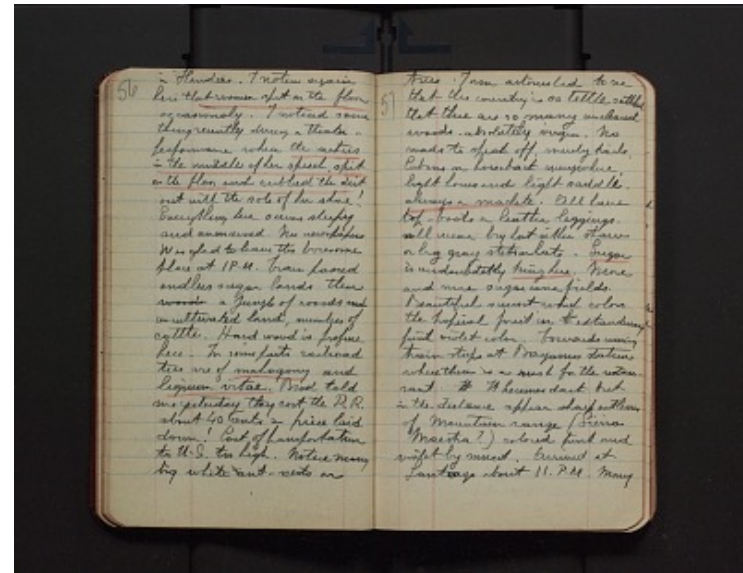 56
in Flanders. I notice again
here that women spit on the floor
occasionally. I noticed same
thing recently during a theatre
performance when the actress
in the middle of her speech, spit
on the floor and rubbed the dirt
out with the sole of her shoe!
Everything here seems sleepy
and unnerved. No newspapers
Was glad to leave this boresome
place at 1 P.M. Train passed
endless sugar lands then
woods a jungle of woods and
uncultivated land, number of
cattle. Hard wood is profuse
here. In some parts railroad
ties are of mahogany and
lignum vitae. Mod told
me yesterday they cost the R.R.
about 40 cents a piece laid
down! Cost of transportation
to U.S. too high. Notice many
big white ant-nests on
57
trees. I am astonished to see
that this country is so little settled
that there are so many uncleared
woods absolutely virgin. No
roads to speak of, merely trails.
Cubans on horseback everywhere
light horses and light saddle.
always a machete. All have
top-boots or leather leggings.
all wear big hats either straw
or big gray stetson hats. Sugar
is undoubtedly king here. More
and more sugar cane fields.
Beautiful sunset colors
the tropical fruit in extraordinary
pink violet color. Towards evening
train stops at Bayamo station
where there is a rush for the restau-
rant. It becomes dark but
in the distance appear sharp outlines
of Mountain range (Sierra
Maestra?) colored pink and
violet by sunset. Arrived at
Santiago about 11. P.M. Many